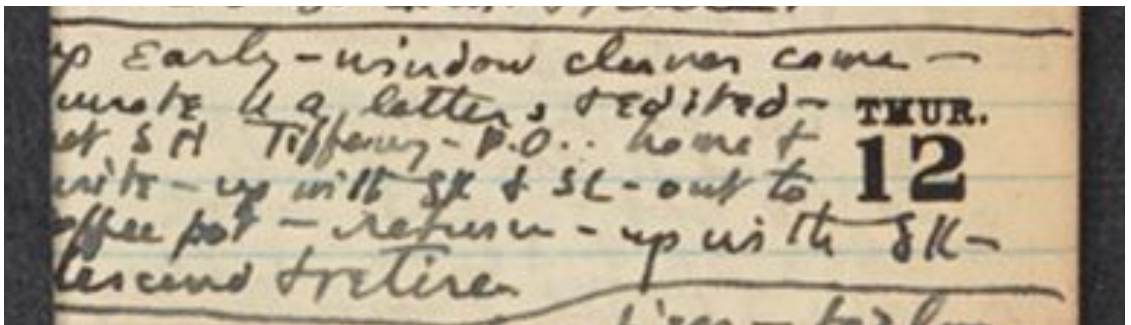 up Early - window cleaner came -
wrote letters & edited - THUR.
met SH Tiffany - P.O.. home & 12
write - up with SK & SL - out to
coffee pot - return - up with SK -
descend & retire